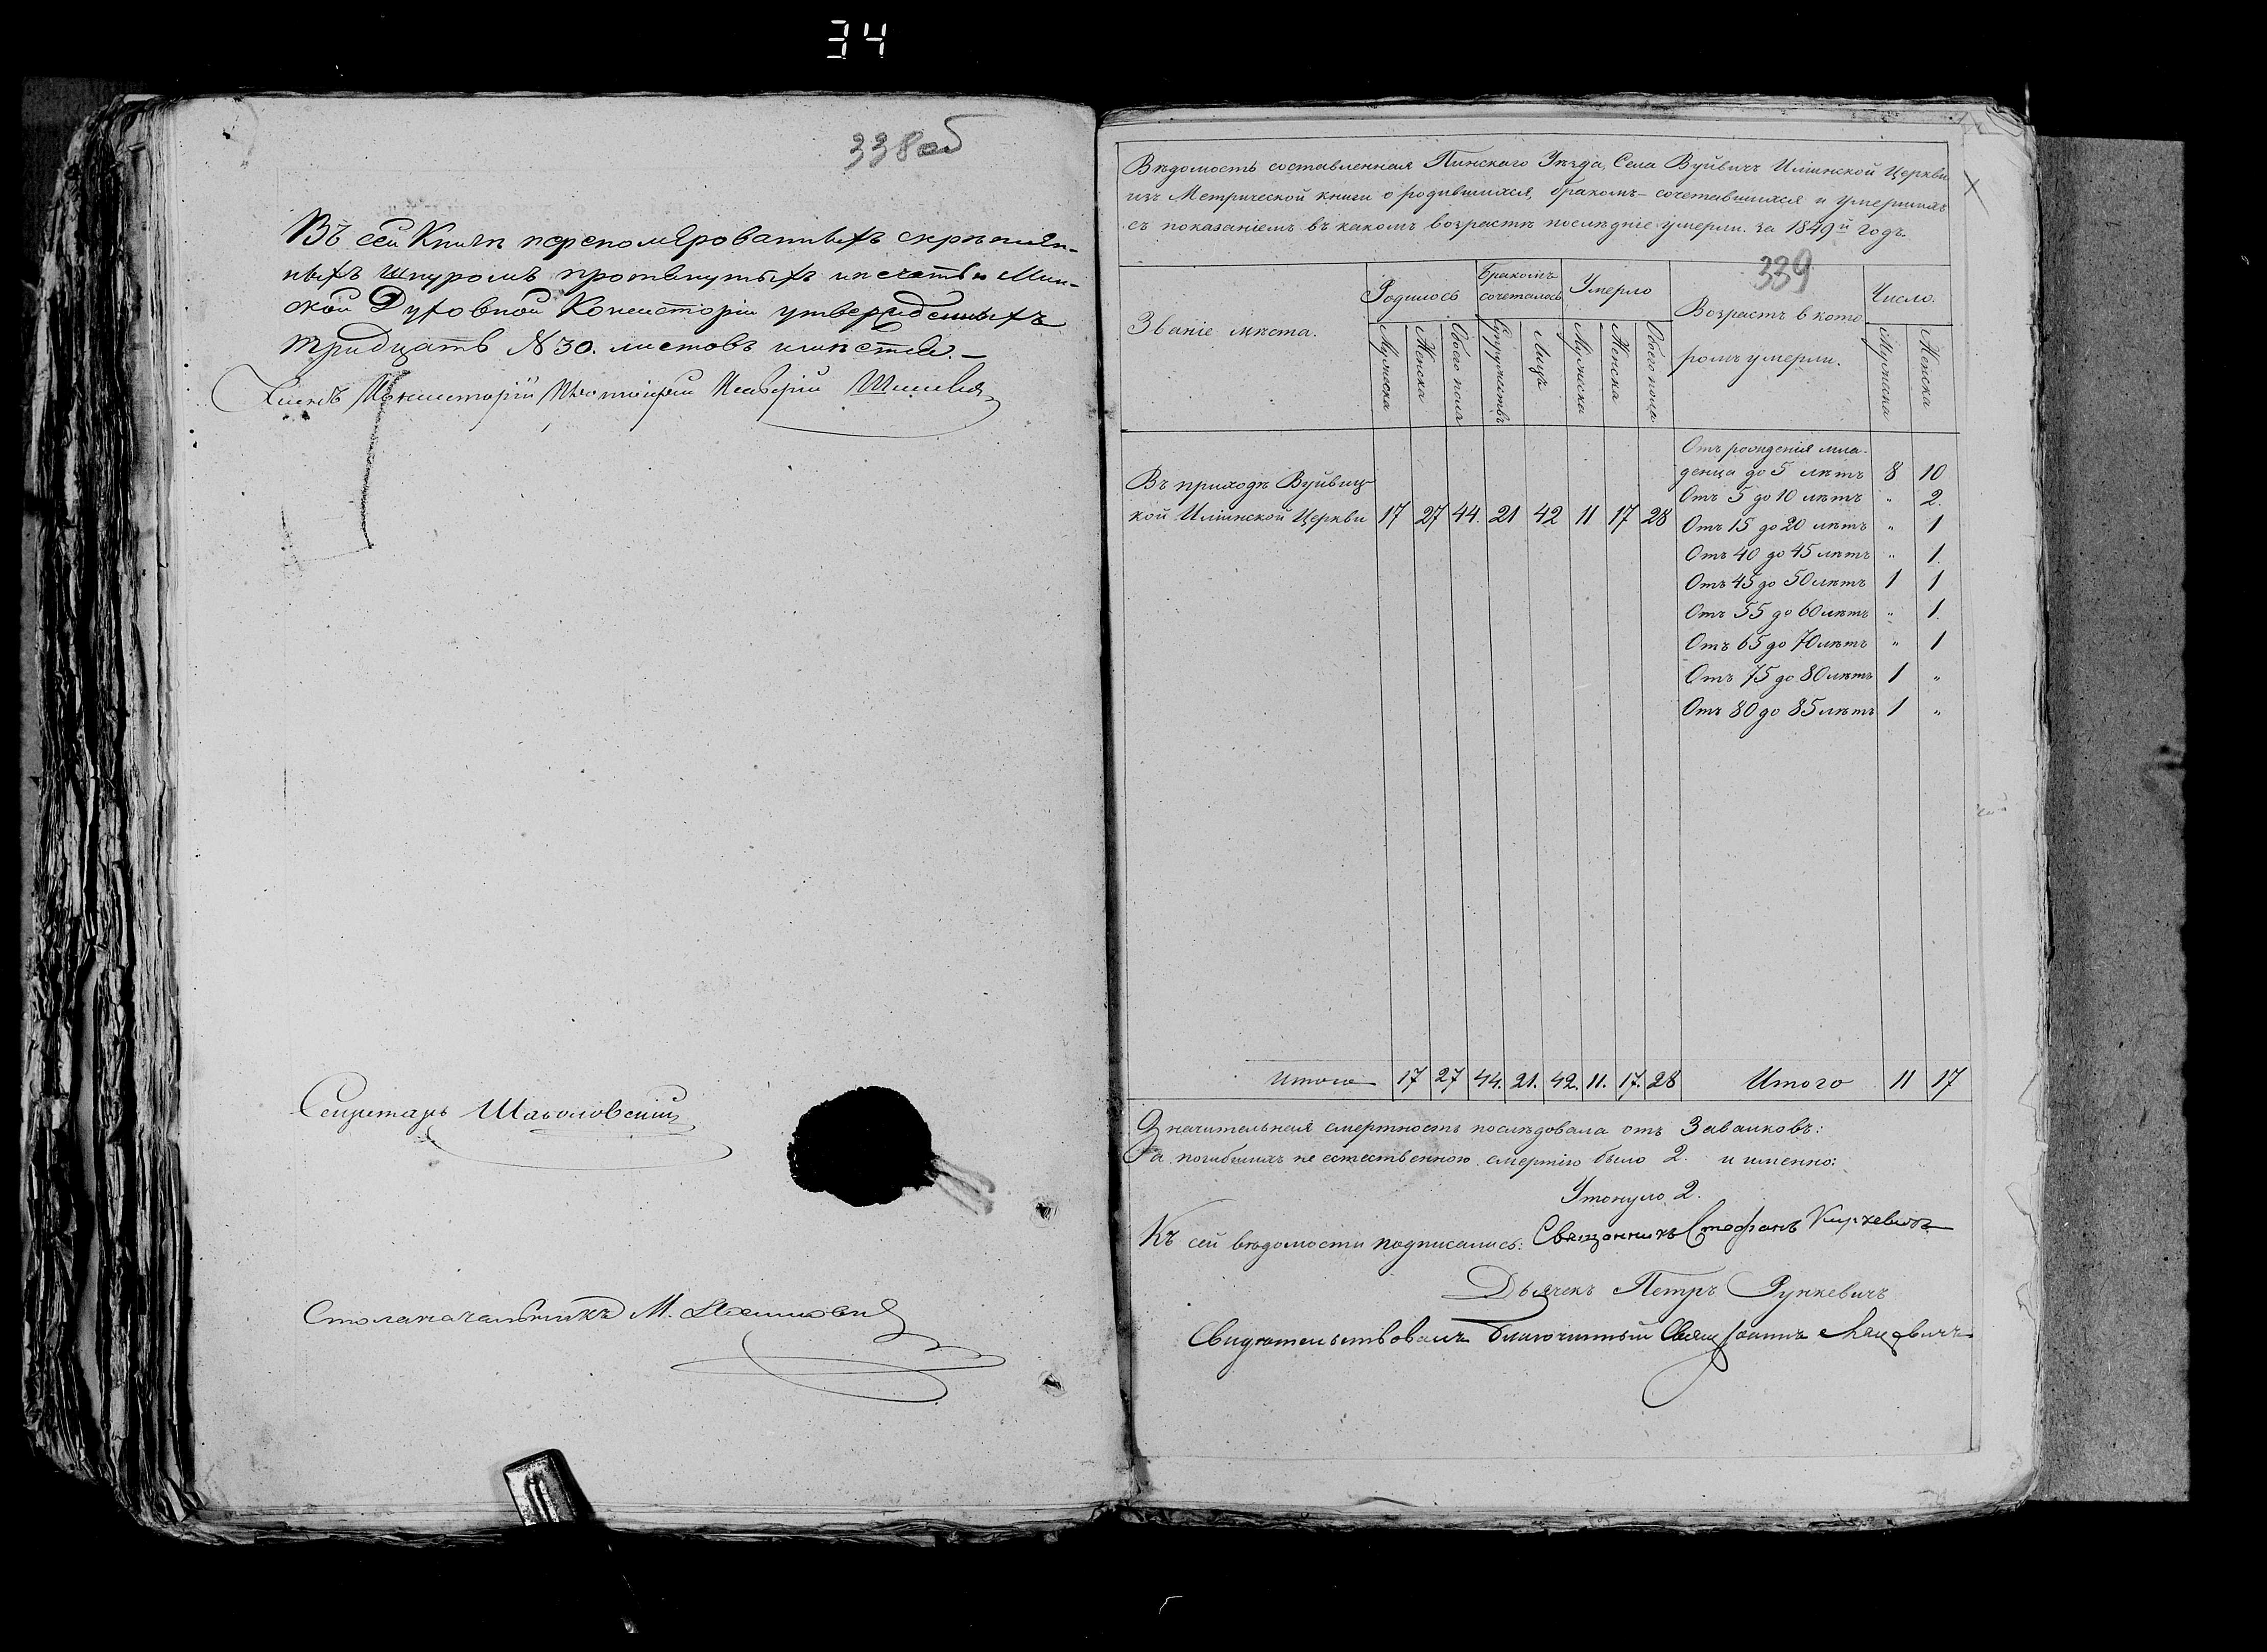 34
338об
Въ сей Книгѣ переномерованныхъ скрѣплен-
ныхъ шнуромъ протянутыхъ и печатью Мин-
ской Духовной Консисторіи утвержденныхъ
тридцать № 30. листовъ
Членъ Консисторіи Протоіерей
Секретарь
Столоначальникъ М.
Вѣдомость составленная Пинскаго Уѣзда, Села Вуйвичъ Иліинской Церкви
изъ Метрической книги о родившихся, бракомъ-сочетавшихся и умершихъ
съ показаніемъ въ какомъ возрастѣ послѣдніе умерли. за 1849й годъ.
339
Званіе мѣста.
Родилось
Бракомъ сочеталось
Умерло
Возрастъ в кото
ромъ умерли.
Число.
Мужеска
Женска
Обоего пола
Супружествъ
Лицъ
Мужеска
Женска
Обоего пола
Мужеска
Женска
Въ приходѣ Вуйвиц-
кой Иліинской Церкви 17 27 44. 21 42 11 17 28
Отъ рожденія мла-
денца до 5 лѣтъ 8 10
Отъ 5 до 10 лѣтъ " 2.
Отъ 15 до 20 лѣтъ " 1
Отъ 40 до 45 лѣтъ " 1.
Отъ 45 до 50 лѣтъ 1 1
Отъ 55 до 60 лѣтъ " 1.
Отъ 65 до 70 лѣтъ " 1
Отъ 75 до 80 лѣтъ 1 "
Отъ 80 до 85 лѣтъ 1 "
Итого 17 27 44. 21. 42. 11. 17. 28 Итого 11 17
Значительная смертность послѣдовала отъ Завалковъ:
а погибшихъ не естественною смертію было 2. и именно:
Утонуло 2.
Къ сей вѣдомости подписались: Священникъ Стефанъ Киркевичъ
Дьячекъ Петръ Рункевичъ
Свидѣтельствовалъ Благочинный Свящ Іоаннъ